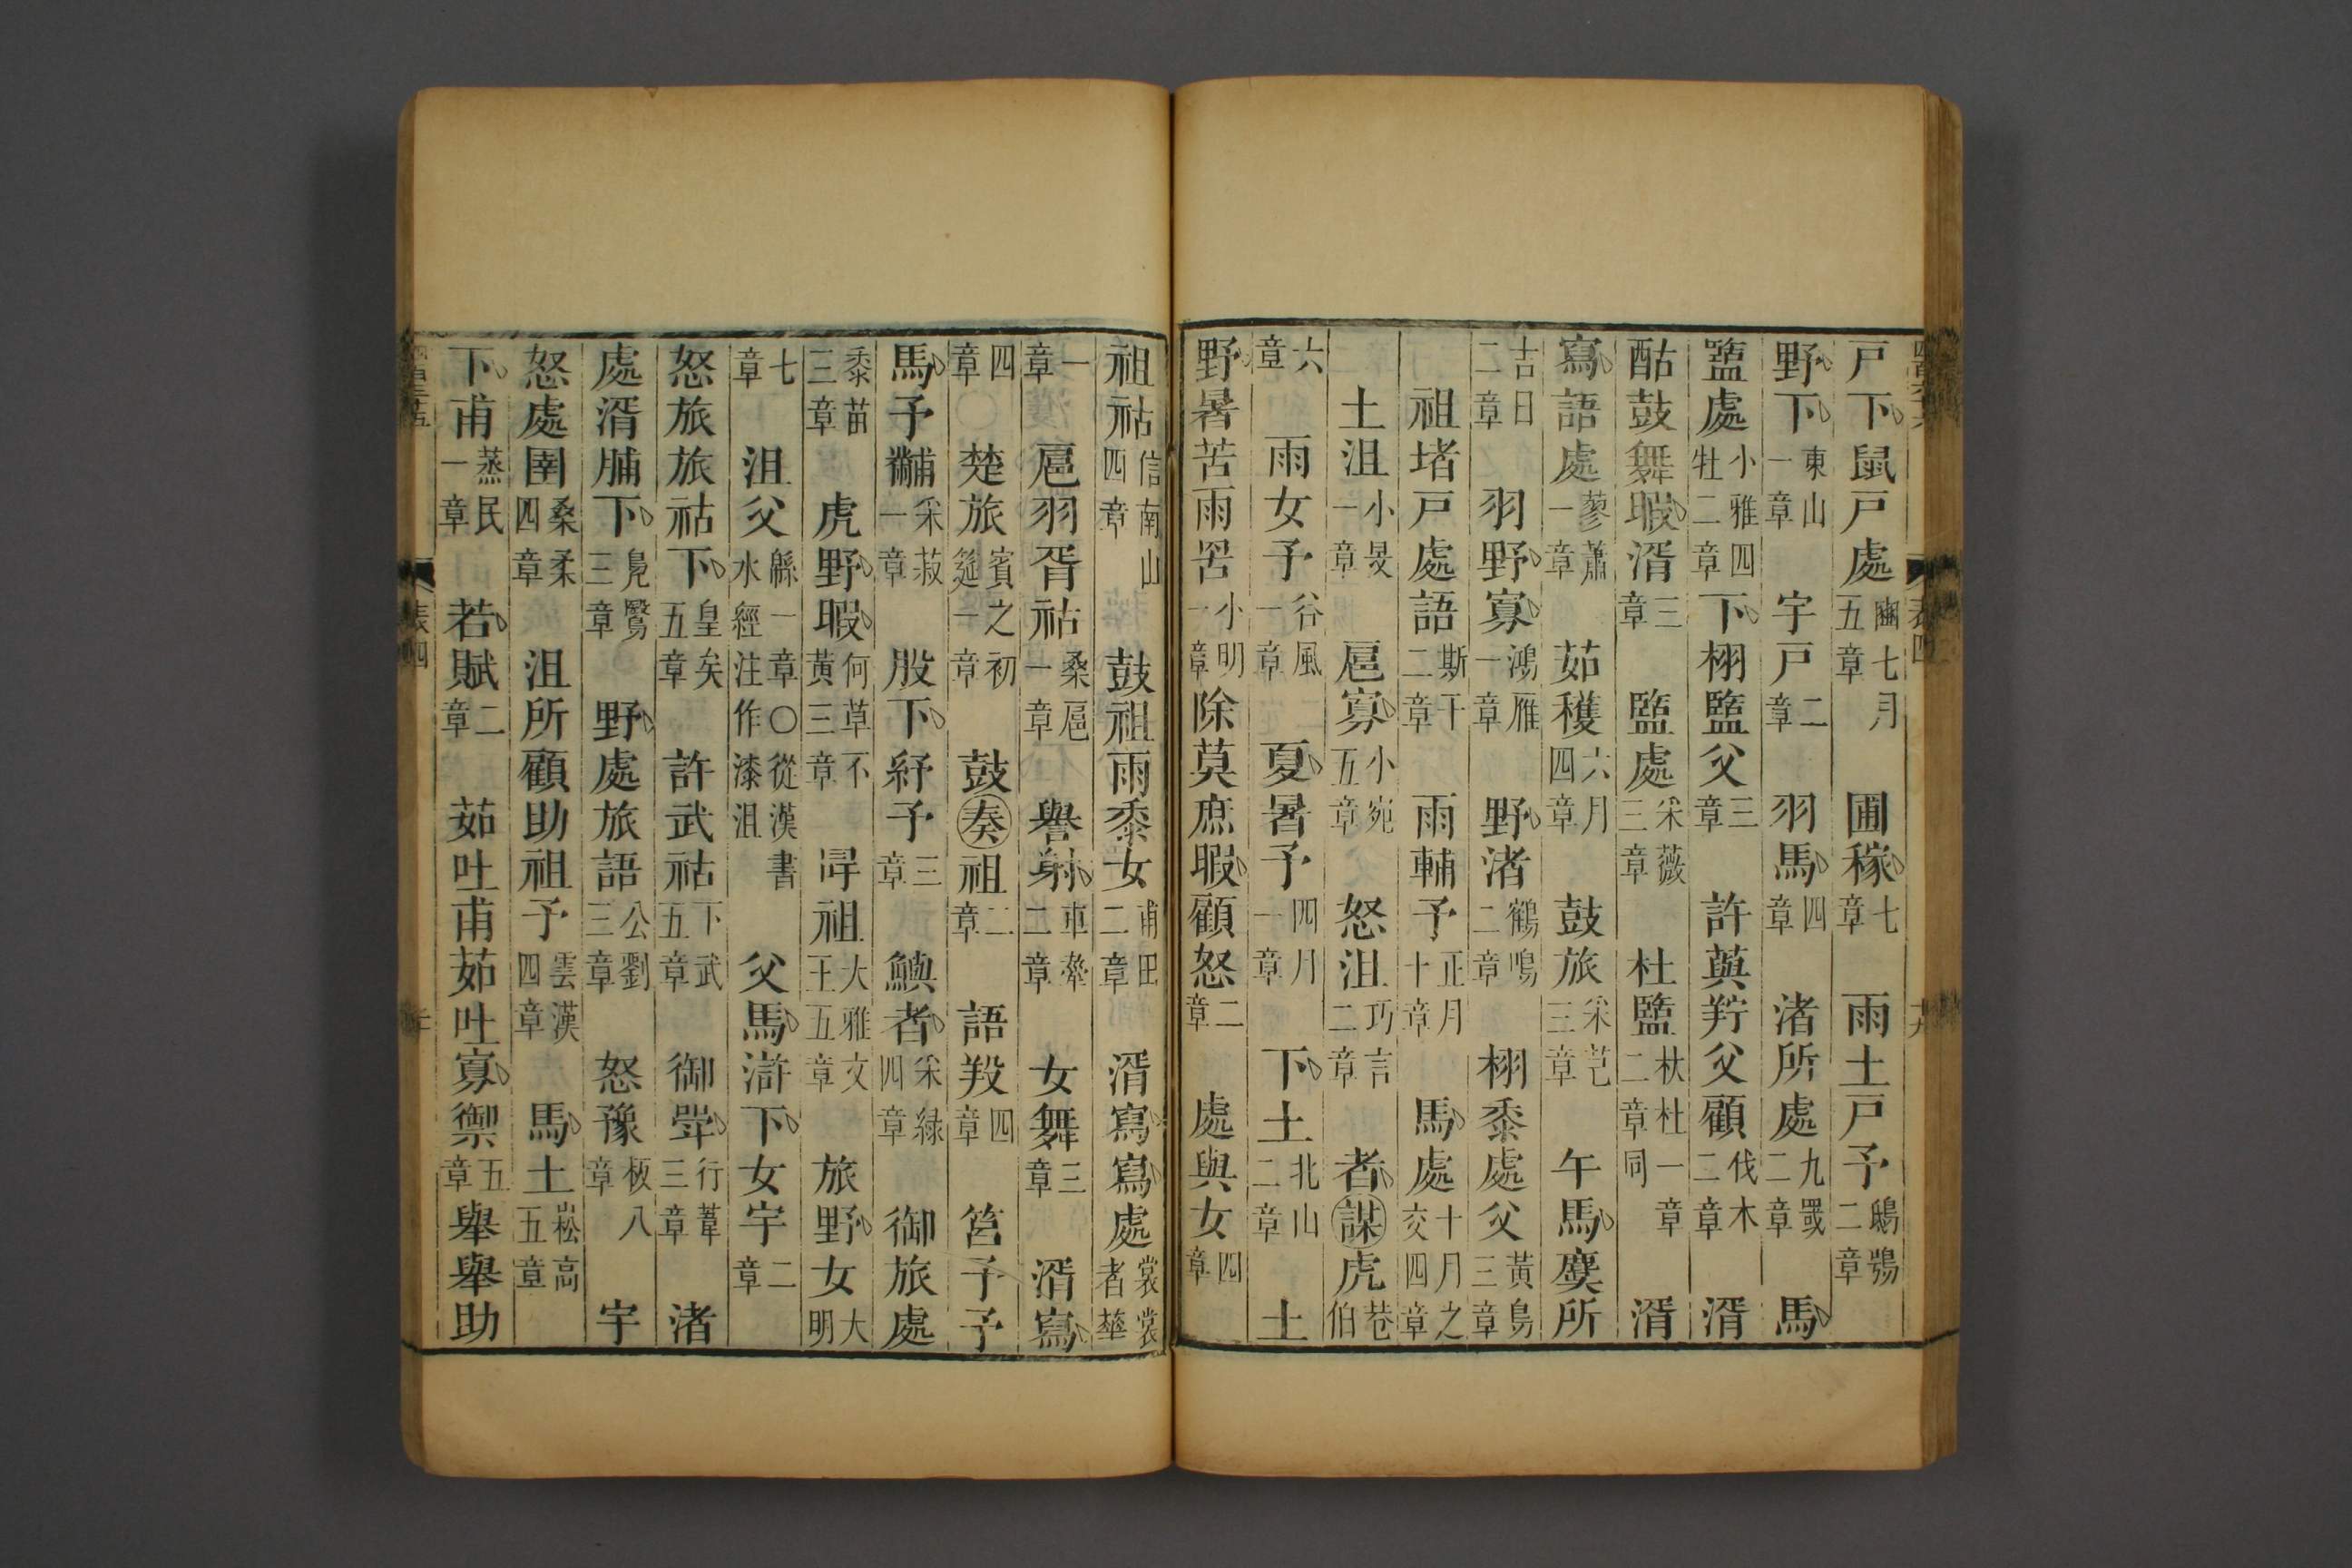 戶下鼠戶處豳七月五章 圃稼七章 雨土戶予鴟鴞二章
野下東山一章 宇戶二章 羽馬四章 渚所處九罭二章 馬
盬處小雅四牡二章 下栩盬父三章 許藇羜父顧伐木二章 湑
酤鼓舞暇湑三章 盬處采薇三章 杜盬杕杜一章二章同 湑
寫語處蓼蕭一章 茹穫六月四章 鼓旅采芑三章 午馬麌所
吉日二章 羽野寡鴻雁一章 野渚鶴鳴二章 栩黍處父黃鳥三章
祖堵戶處語斯干二章 雨輔予正月十章 馬處十月之交四章
土沮小旻一章 扈寡小宛五章 怒沮巧言二章 者謀虎巷伯
六章 雨女予谷風一章 夏暑予四月一章 下土北山二章 土
野暑苦雨罟小明一章 除莫庶暇顧怒二章 處與女四章
祖祜信南山四章 鼓祖雨黍女甫田二章 湑寫寫處裳裳者華
一章 扈羽胥祜桑扈一章 譽射車舝二章 女舞三章 湑寫
四章〇 楚旅賓之初筵一章 鼓奏祖二章 語羖四章 筥予予
馬予黼采菽一章 股下紓予三章 鱮者采綠四章 御旅處
黍苗三章 虎野暇何草不黃三章 冔祖大雅文王五章 旅野女大明
七章 沮父緜一章〇從漢書水經注作漆沮 父馬滸下女宇二章
怒旅旅祜下皇矣五章 許武祜下武五章 御斝行葦三章 渚
處湑脯下鳧鷖三章 野處旅語公劉三章 怒豫板八章 宇
怒處圉桑柔四章 沮所顧助祖予雲漢四章 馬土崧高五章
下甫蒸民一章 若賦二章 茹吐甫茹吐寡禦五章 舉舉助